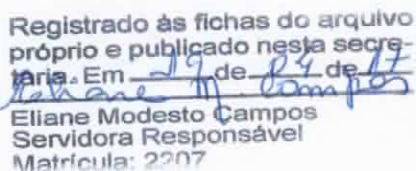 Registrado às fichas do arquivo
próprio e publicado nesta secre-
taria. Em 19 de 04 de 17
Eliane M Campos
Eliane Modesto Campos
Servidora Responsável
Matrícula: 2207